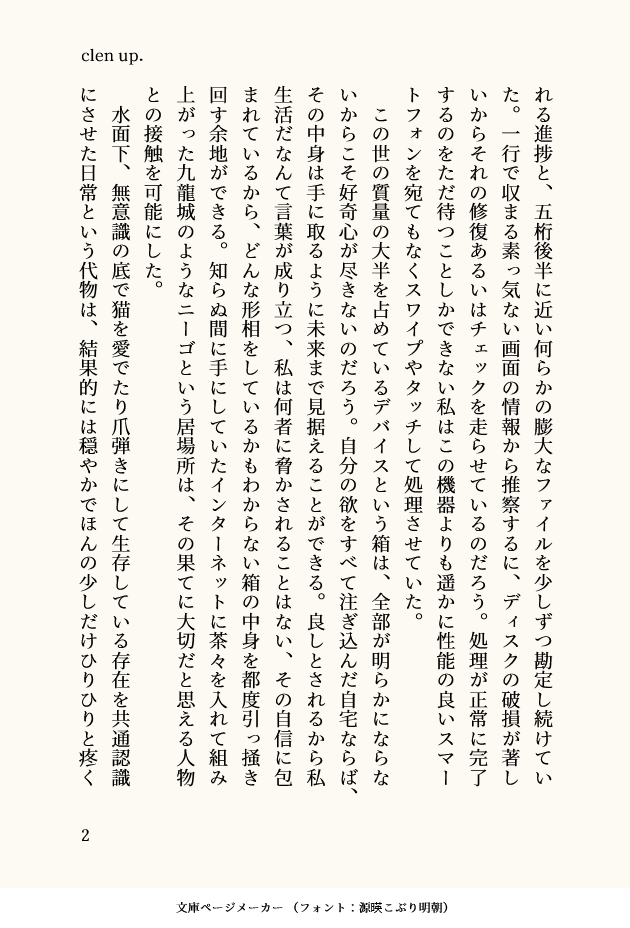 clen up.
れる進捗と、五桁後半に近い何らかの膨大なファイルを少しずつ勘定し続けてい
た。一行で収まる素っ気ない画面の情報から推察するに、ディスクの破損が著し
いからそれの修復あるいはチェックを走らせているのだろう。処理が正常に完了
するのをただ待つことしかできない私はこの機器よりも遥かに性能の良いスマー
トフォンを宛てもなくスワイプやタッチして処理させていた。
　この世の質量の大半を占めているデバイスという箱は、全部が明らかにならな
いからこそ好奇心が尽きないのだろう。自分の欲をすべて注ぎ込んだ自宅ならば、
その中身は手に取るように未来まで見据えることができる。良しとされるから私
生活だなんて言葉が成り立つ、私は何者に脅かされることはない、その自信に包
まれているから、どんな形相をしているかもわからない箱の中身を都度引っ掻き
回す余地ができる。知らぬ間に手にしていたインターネットに茶々を入れて組み
上がった九龍城のようなニーゴという居場所は、その果てに大切だと思える人物
との接触を可能にした。
　水面下、無意識の底で猫を愛でたり爪弾きにして生存している存在を共通認識
にさせた日常という代物は、結果的には穏やかでほんの少しだけひりひりと疼く
2
文庫ページメーカー （フォント：源暎こぶり明朝）